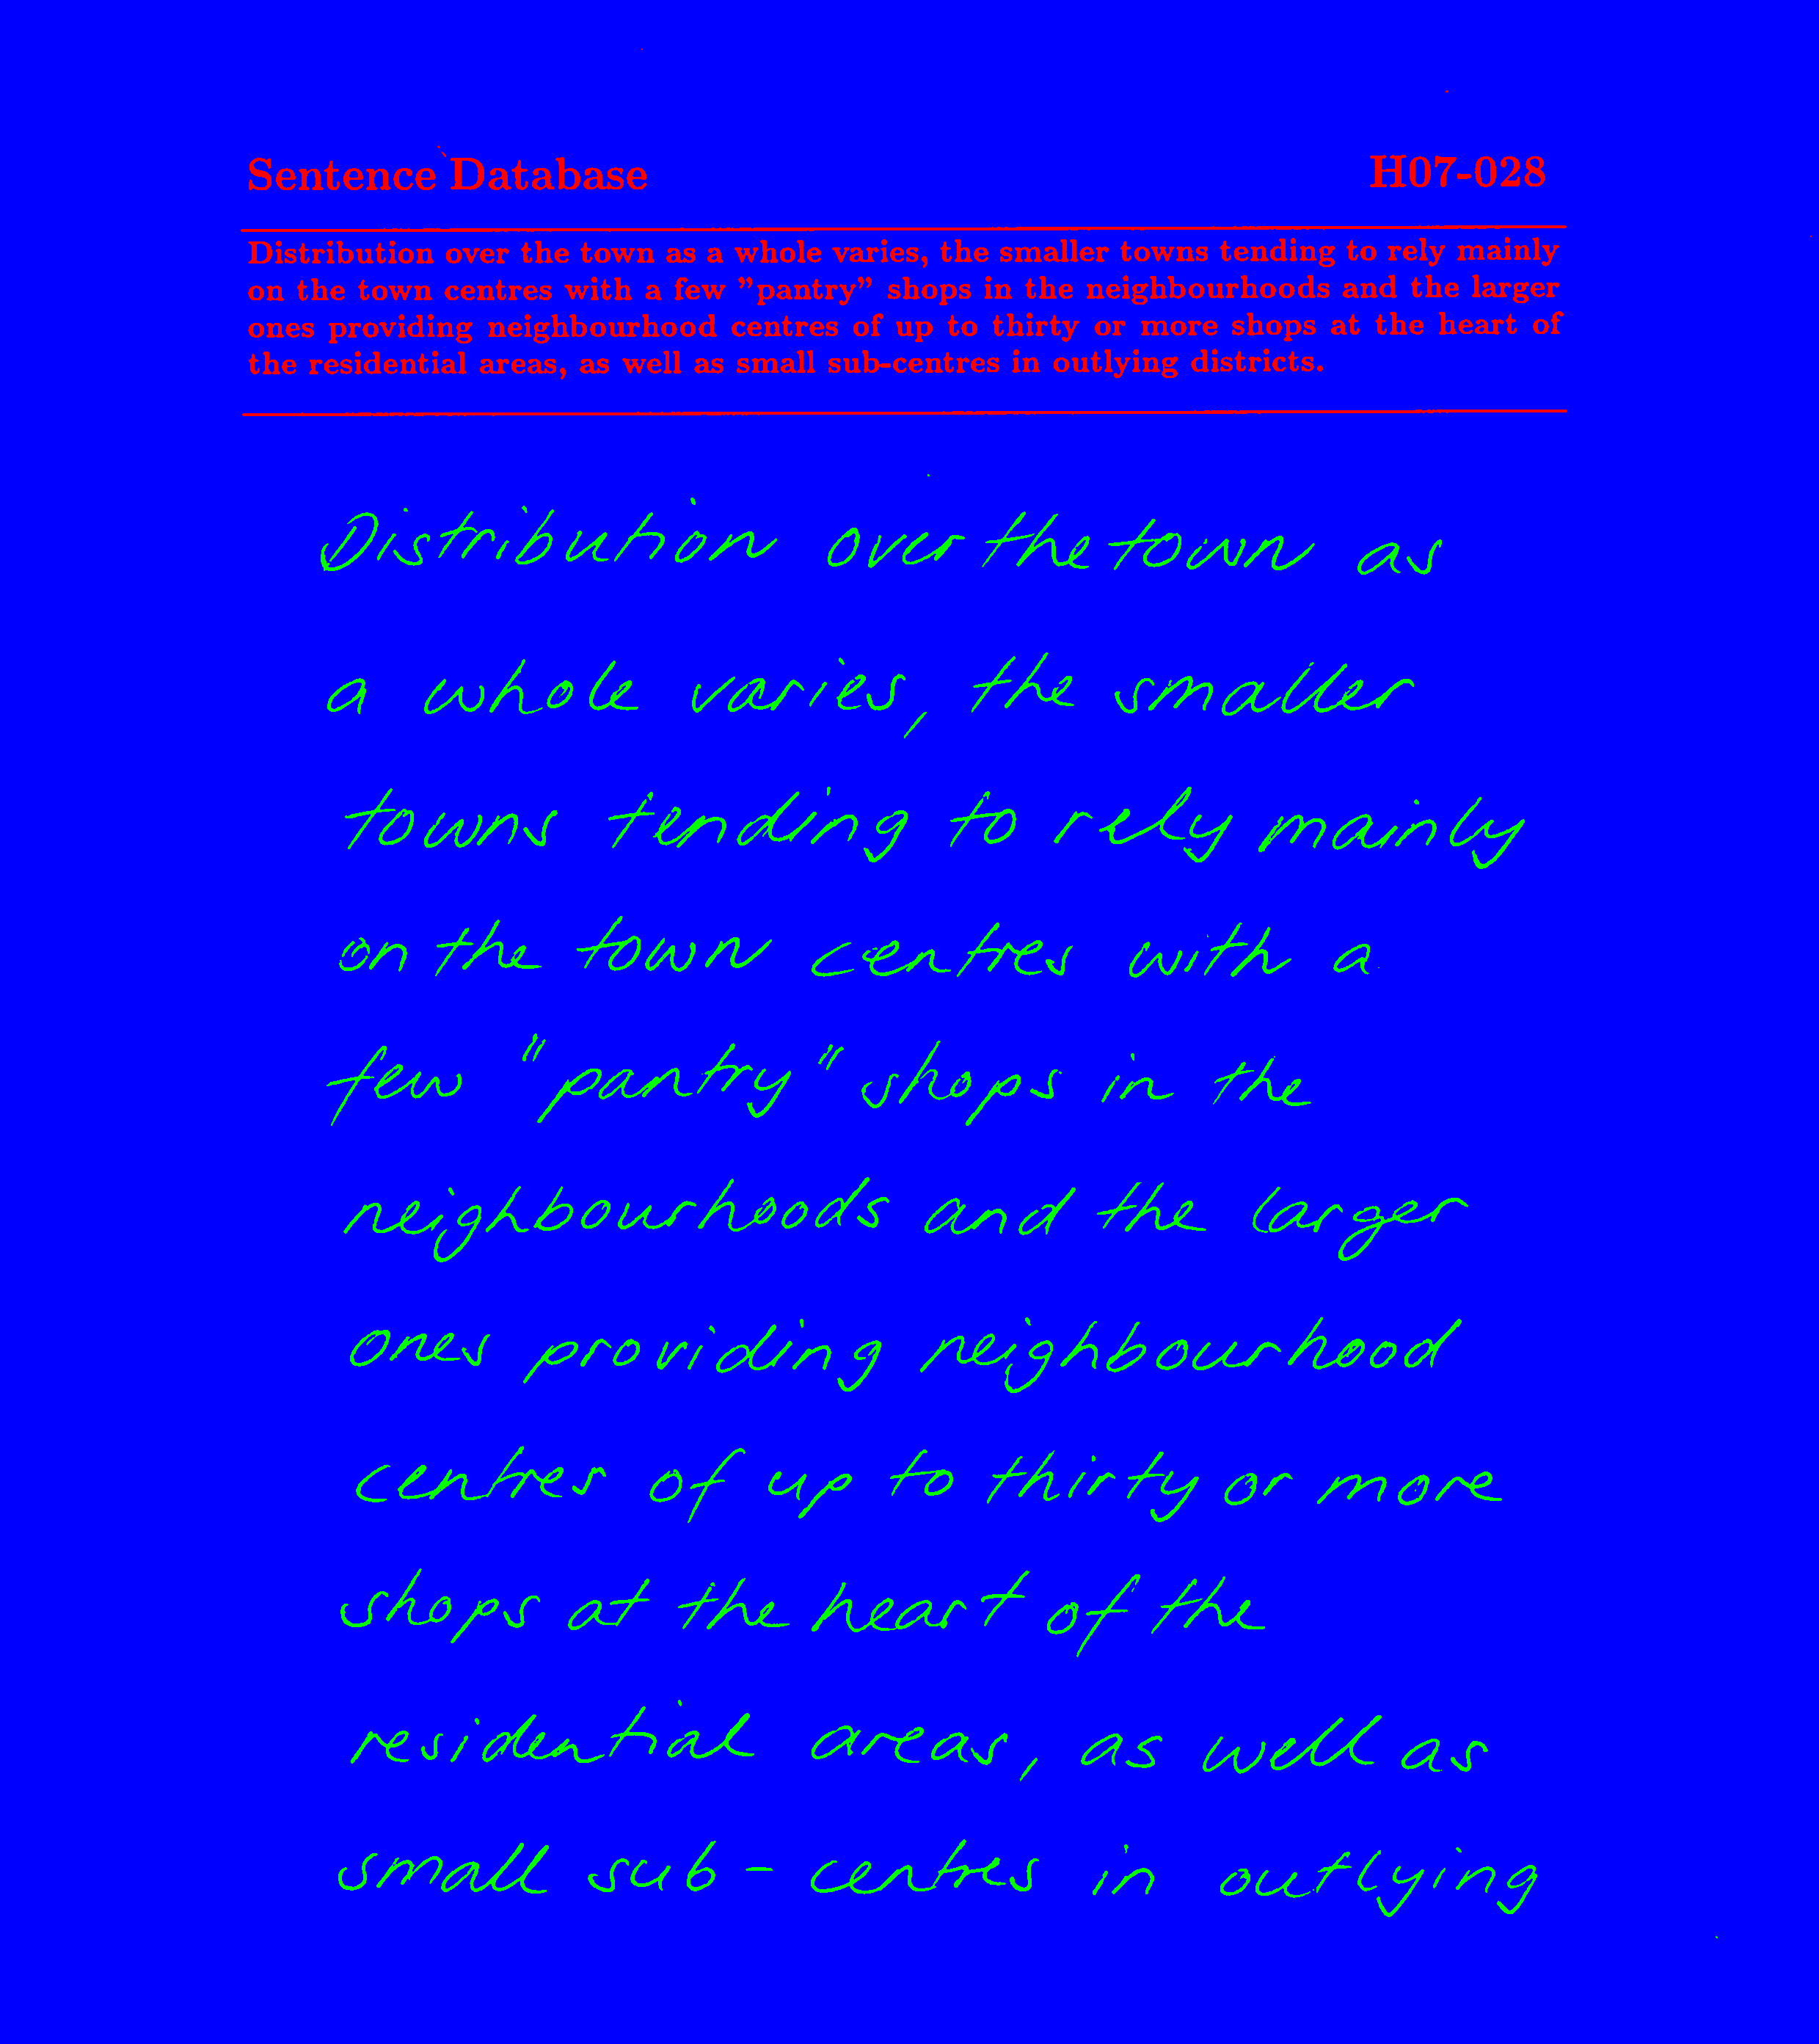 Sentence Database H07-028
Distribution over the town as a whole varies, the smaller towns tending to rely mainly
on the town centres with a few "pantry" shops in the neighbourhoods and the larger
ones providing neighbourhood centres of up to thirty or more shops at the heart of
the residential areas, as well as small sub-centres in outlying districts.
Distribution over the town as
a whole varies, the smaller
towns tending to rely mainly
on the town centres with a
few "pantry" shops in the
neighbourhoods and the larger
ones providing neighbourhood
centres of up to thirty or more
shops at the heart of the
residential areas, as well as
small sub-centres in outlying